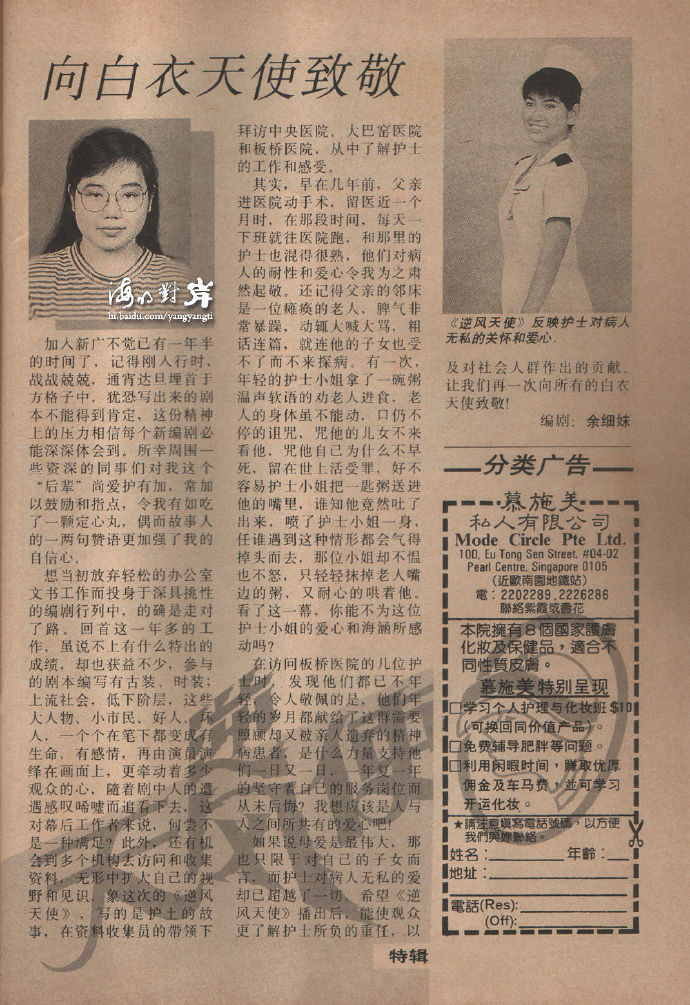 向白衣天使致敬
海的對岸
hi.baidu.com/yangyangti
加入新广不觉已有一年半
的时间了，记得刚入行时，
战战兢兢，通宵达旦埋首于
方格子中，犹恐写出来的剧
本不能得到肯定，这份精神
上的压力相信每个新编剧必
能深深体会到。所幸周围一
些资深的同事们对我这个
“后辈”尚爱护有加，常加
以鼓励和指点，令我有如吃
了一颗定心丸，偶而故事人
的一两句赞语更加强了我的
自信心。
想当初放弃轻松的办公室
文书工作而投身于深具挑性
的编剧行列中，的确是走对
了路。回首这一年多的工
作，虽说不上有什么特出的
成绩，却也获益不少，参与
的剧本编写有古装、时装；
上流社会，低下阶层，这些
大人物、小市民、好人、坏
人，一个个在笔下都变成有
生命、有感情，再由演员演
绎在画面上，更牵动着多少
观众的心，随着剧中人的遭
遇感叹唏嘘而追看下去，这
对幕后工作者来说，何尝不
是一种满足？此外，还有机
会到多个机构去访问和收集
资料，无形中扩大自己的视
野和见识。象这次的《逆风
天使》，写的是护士的故
事，在资料收集员的带领下
拜访中央医院、大巴窑医院
和板桥医院，从中了解护士
的工作和感受。
其实，早在几年前，父亲
进医院动手术，留医近一个
月时，在那段时间，每天一
下班就往医院跑，和那里的
护士也混得很熟，他们对病
人的耐性和爱心令我为之肃
然起敬。还记得父亲的邻床
是一位瘫痪的老人，脾气非
常暴躁，动辄大喊大骂，粗
话连篇，就连他的子女也受
不了而不来探病。有一次，
年轻的护士小姐拿了一碗粥
温声软语的劝老人进食，老
人的身体虽不能动，口仍不
停的诅咒，咒他的儿女不来
看他，咒他自己为什么不早
死，留在世上活受罪，好不
容易护士小姐把一匙粥送进
他的嘴里，谁知他竟然吐了
出来，喷了护士小姐一身，
任谁遇到这种情形都会气得
掉头而去，那位小姐却不愠
也不怒，只轻轻抹掉老人嘴
边的粥，又耐心的哄着他。
看了这一幕，你能不为这位
护士小姐的爱心和海涵所感
动吗？
在访问板桥医院的几位护
士时，发现他们都已不年
轻，令人敬佩的是，他们年
轻的岁月都献给了这群需要
照顾却又被亲人遗弃的精神
病患者，是什么力量支持他
们一日又一日，一年复一年
的坚守着自己的服务岗位而
从未后悔？我想应该是人与
人之间所共有的爱心吧！
如果说母爱是最伟大，那
也只限于对自己的子女而
言，而护士对病人无私的爱
却已超越了一切。希望《逆
风天使》播出后，能使观众
更了解护士所负的重任，以
《逆风天使》反映护士对病人
无私的关怀和爱心。
及对社会人群作出的贡献。
让我们再一次向所有的白衣
天使致敬！
编剧：余细妹
分类广告
慕施美
私人有限公司
Mode Circle Pte Ltd.
100, Eu Tong Sen Street, #04-02
Pearl Centre, Singapore 0105
（近歐南園地鐵站）
電：2202289, 2226286
聯絡紫霞或壽花
本院擁有8個國家護膚
化妝及保健品，適合不
同性質皮膚。
慕施美特别呈现
□学习个人护理与化妆班$10
（可换回同价值产品）。
□免费辅导肥胖等问题。
□利用闲暇时间，赚取优厚
佣金及车马费，并可学习
开运化妆。
★請注意填寫電話號碼，以方便
我們與妳聯絡。
姓名：
年齡：
地址：
電話(Res):
(Off):
特辑